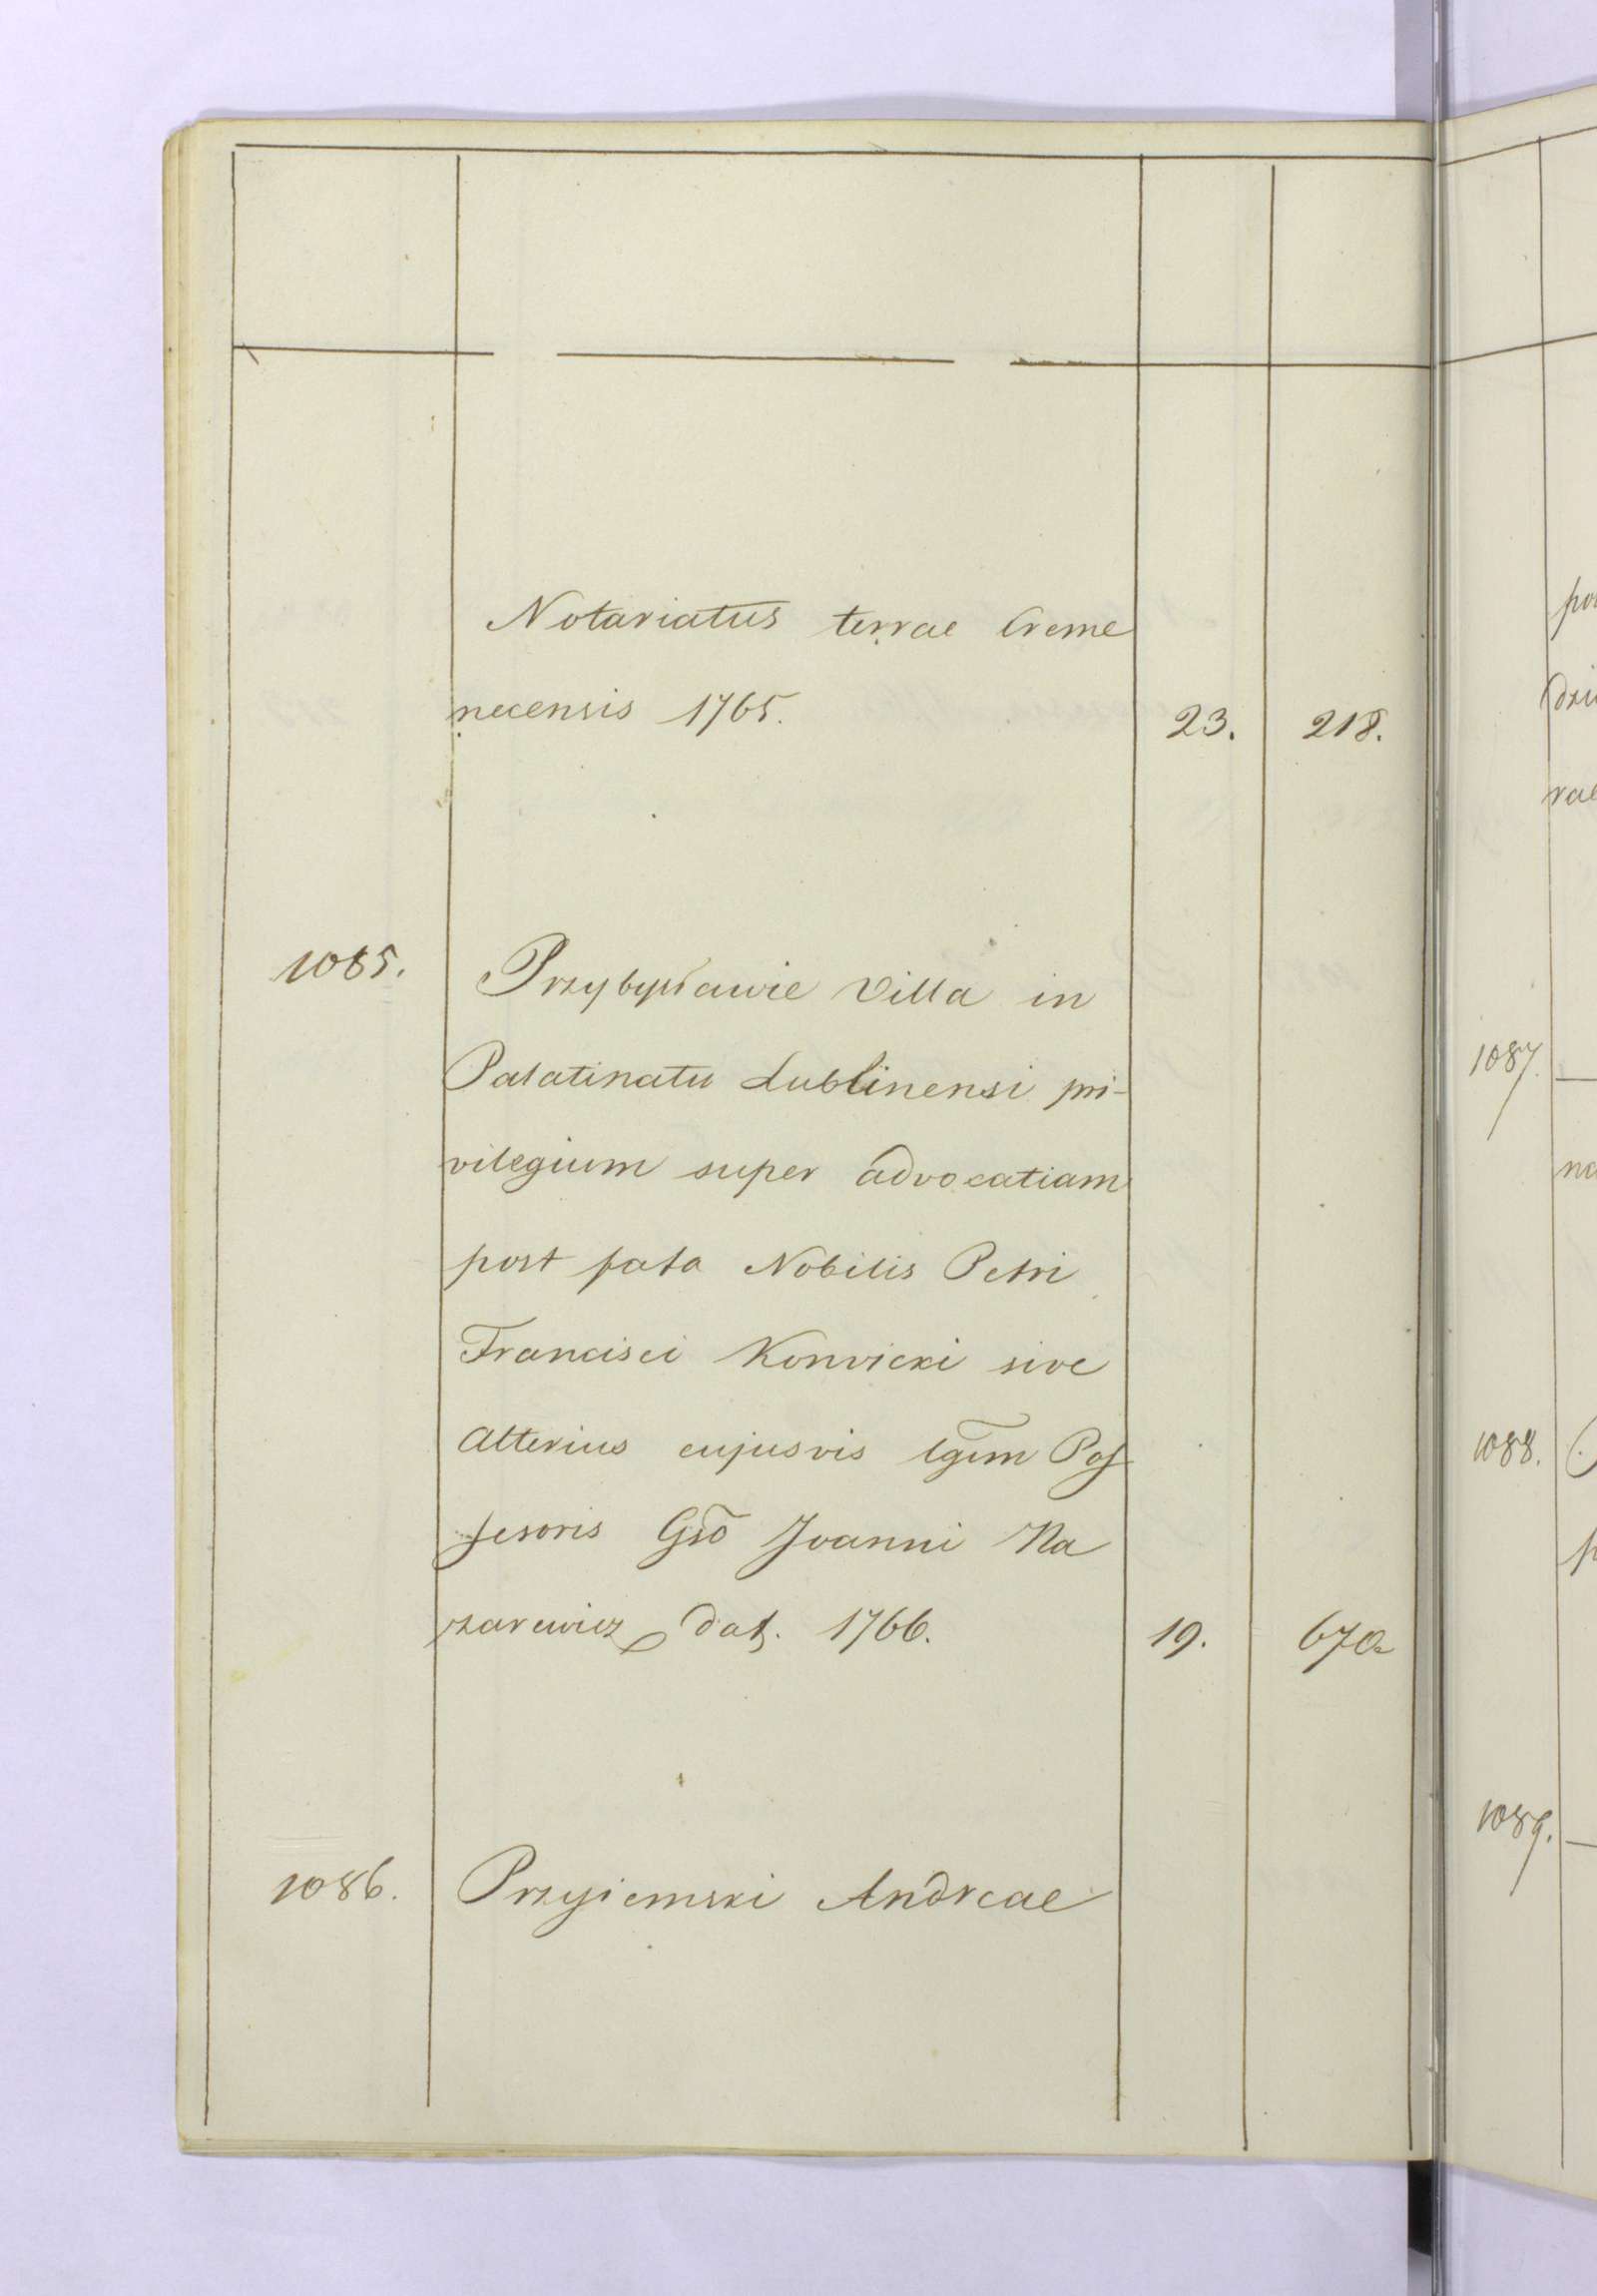 Notariatus terrae Creme
necensis 1765. 23. 218.
1085. Przybysławie Villa in
Palatinatu Lublinensi pri-
vilegium super advocatiam
post fata Nobilis Petri
Francisci Konvicki sive
alterius cujusvis lgtm̃ Pos
sesoris Gsõ Joanni Na
zarewicz dat. 1766. 19. 670
1086. Przyiemski Andreae
1087.
1088.
1089.